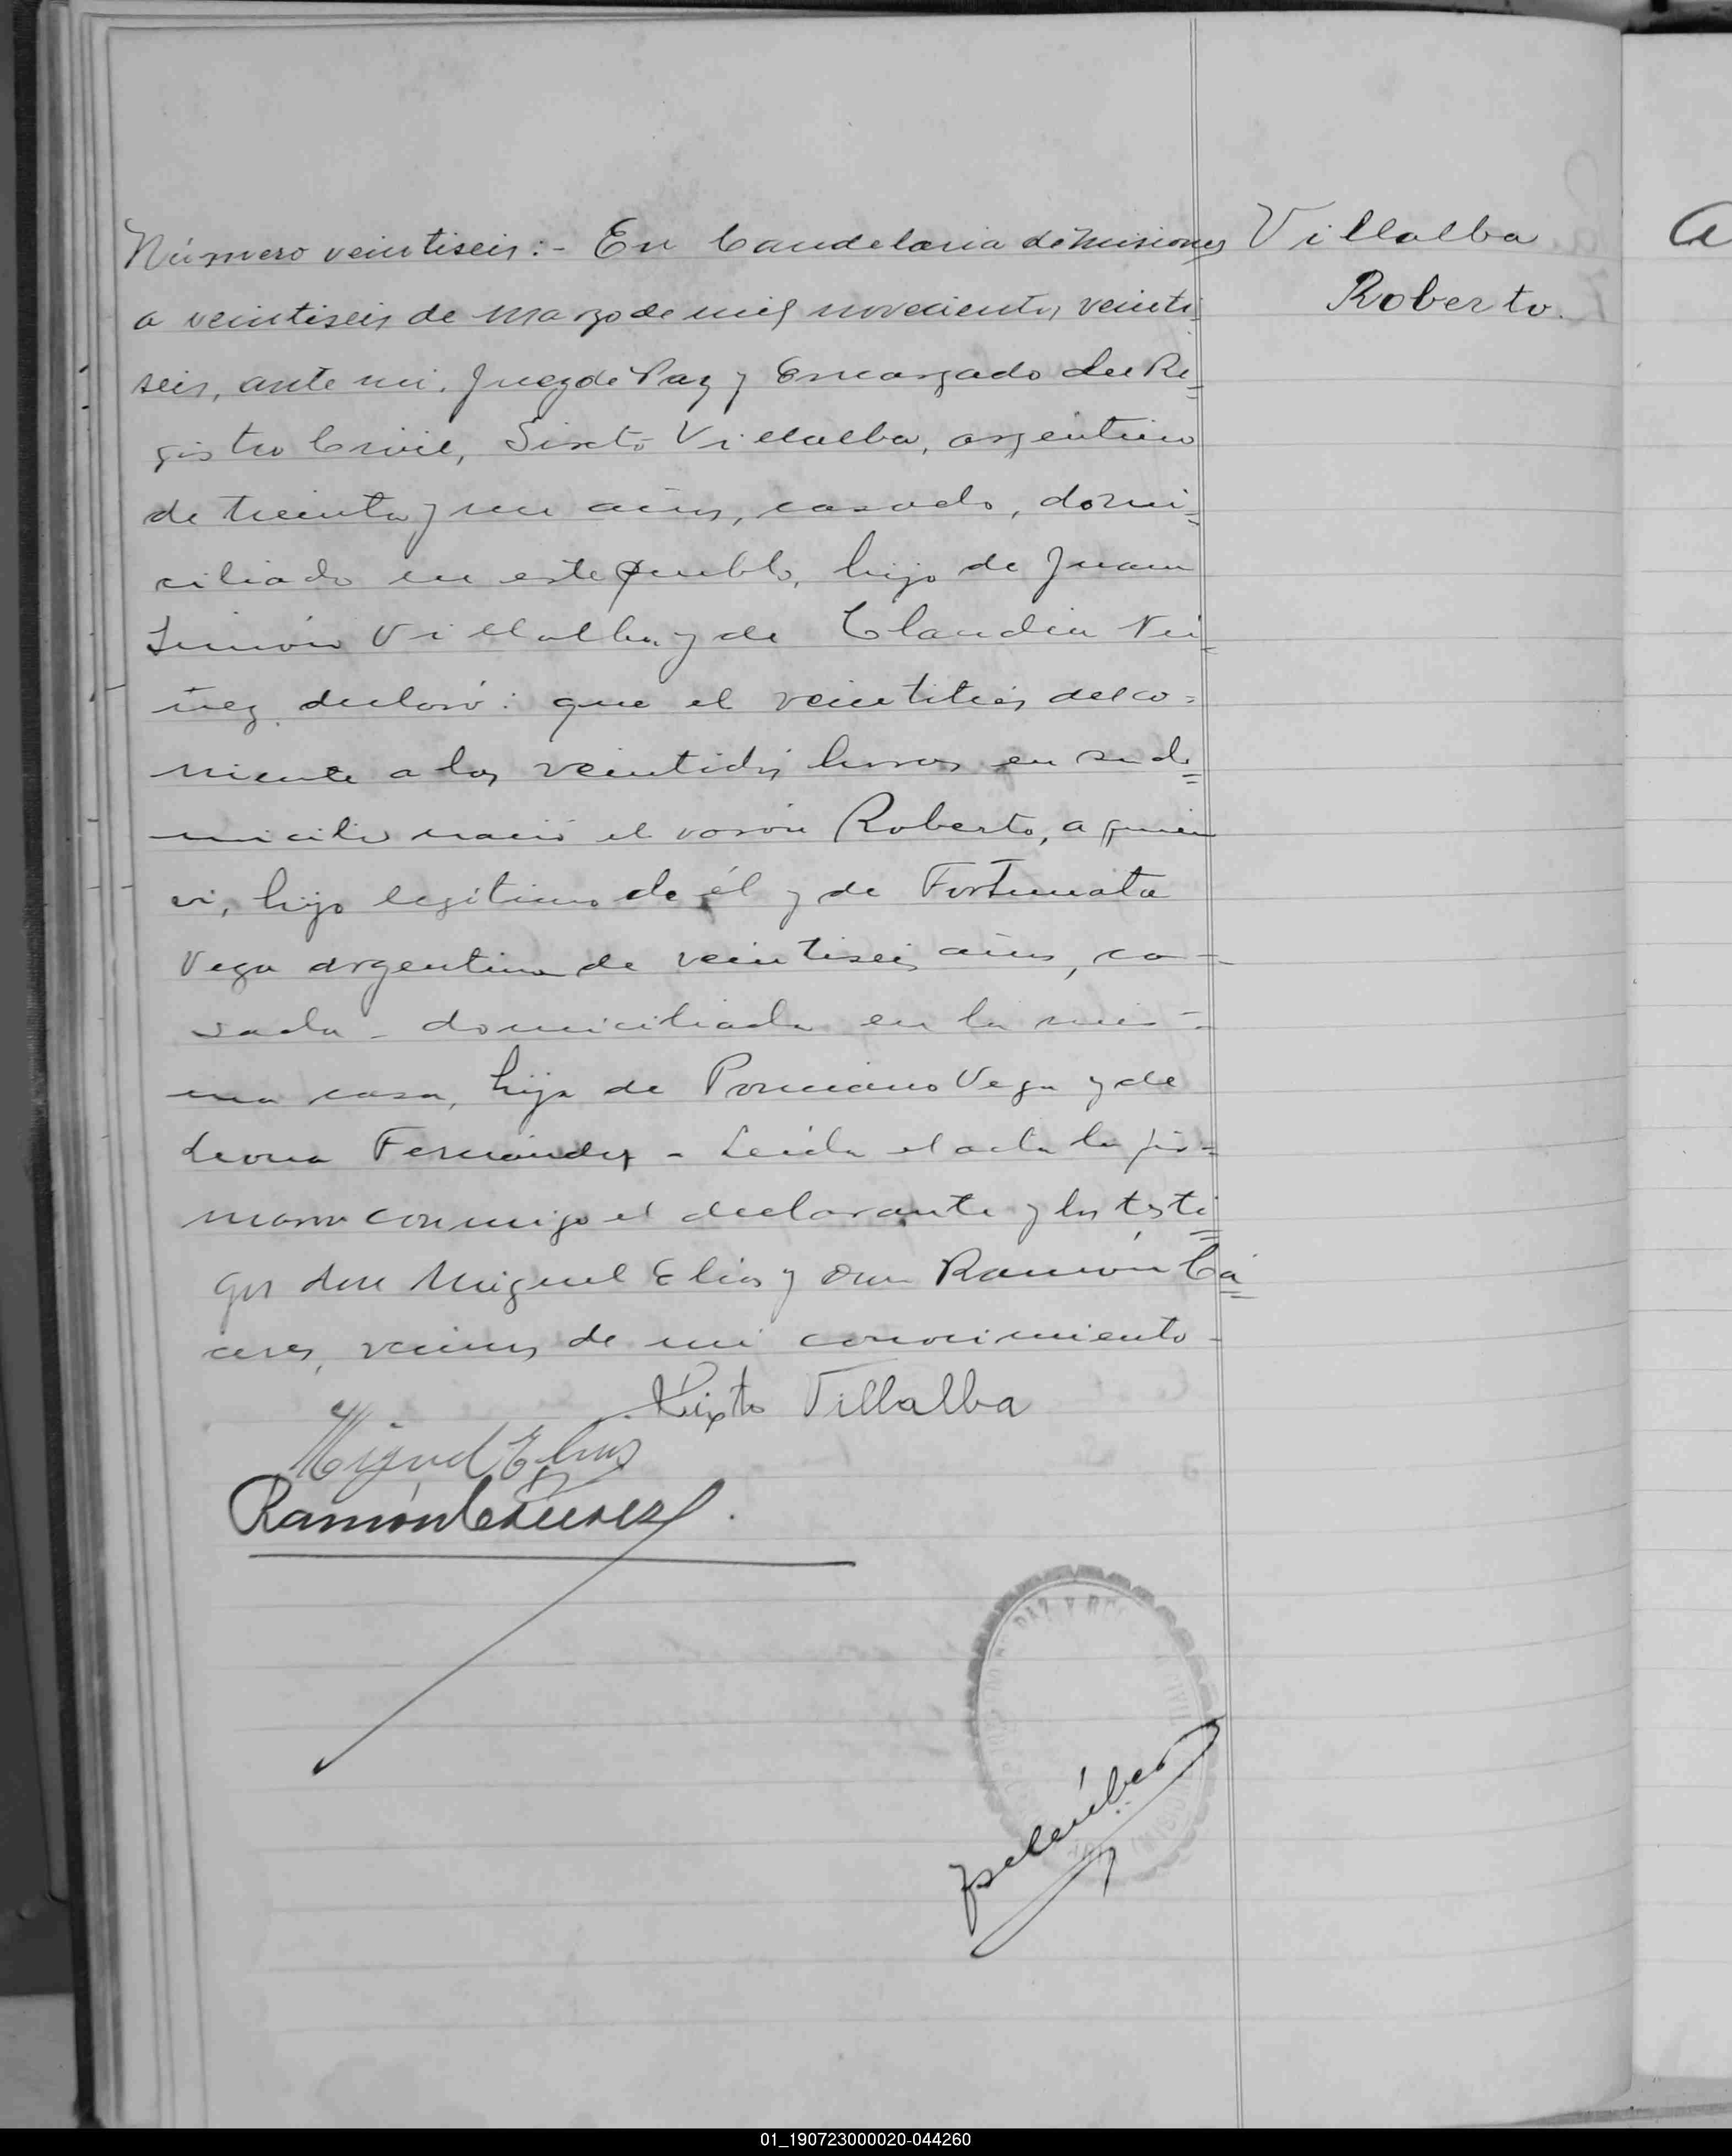 Número veintiseis:- En Candelaria de Misiones
Villalba
Roberto.
a veintiseis de Marzo de mil novecientos veinti
seis, ante mi. Juez de Paz y Encargado del Re=
gistro Civil, Sixto Villalba, argentino
de treinta y un años, casado, domi=
ciliado en este pueblo, hijo de Juan
Simón Villalba y de Claudia Nú
ñez declaró: que el veintitrés del co=
rriente a las veintidós horas en su do=
micilio nació el varón Roberto, a quien
vi, hijo legítimo de él y de Fortunata
Vega argentina de veintiseis años, ca-
sada - domiciliada en la mis=
ma casa, hija de Ponciano Vega y de
Leona Fernández - Leída el acta la fir=
maron conmigo el declarante y los testi=
gos don Miguel Elias y don Ramón Cá=
ceres, vecinos de mi conocimiento-
Sixto Villalba
Miguel Elias
Ramón Cáceres.
PAZ Y
01_190723000020-044260